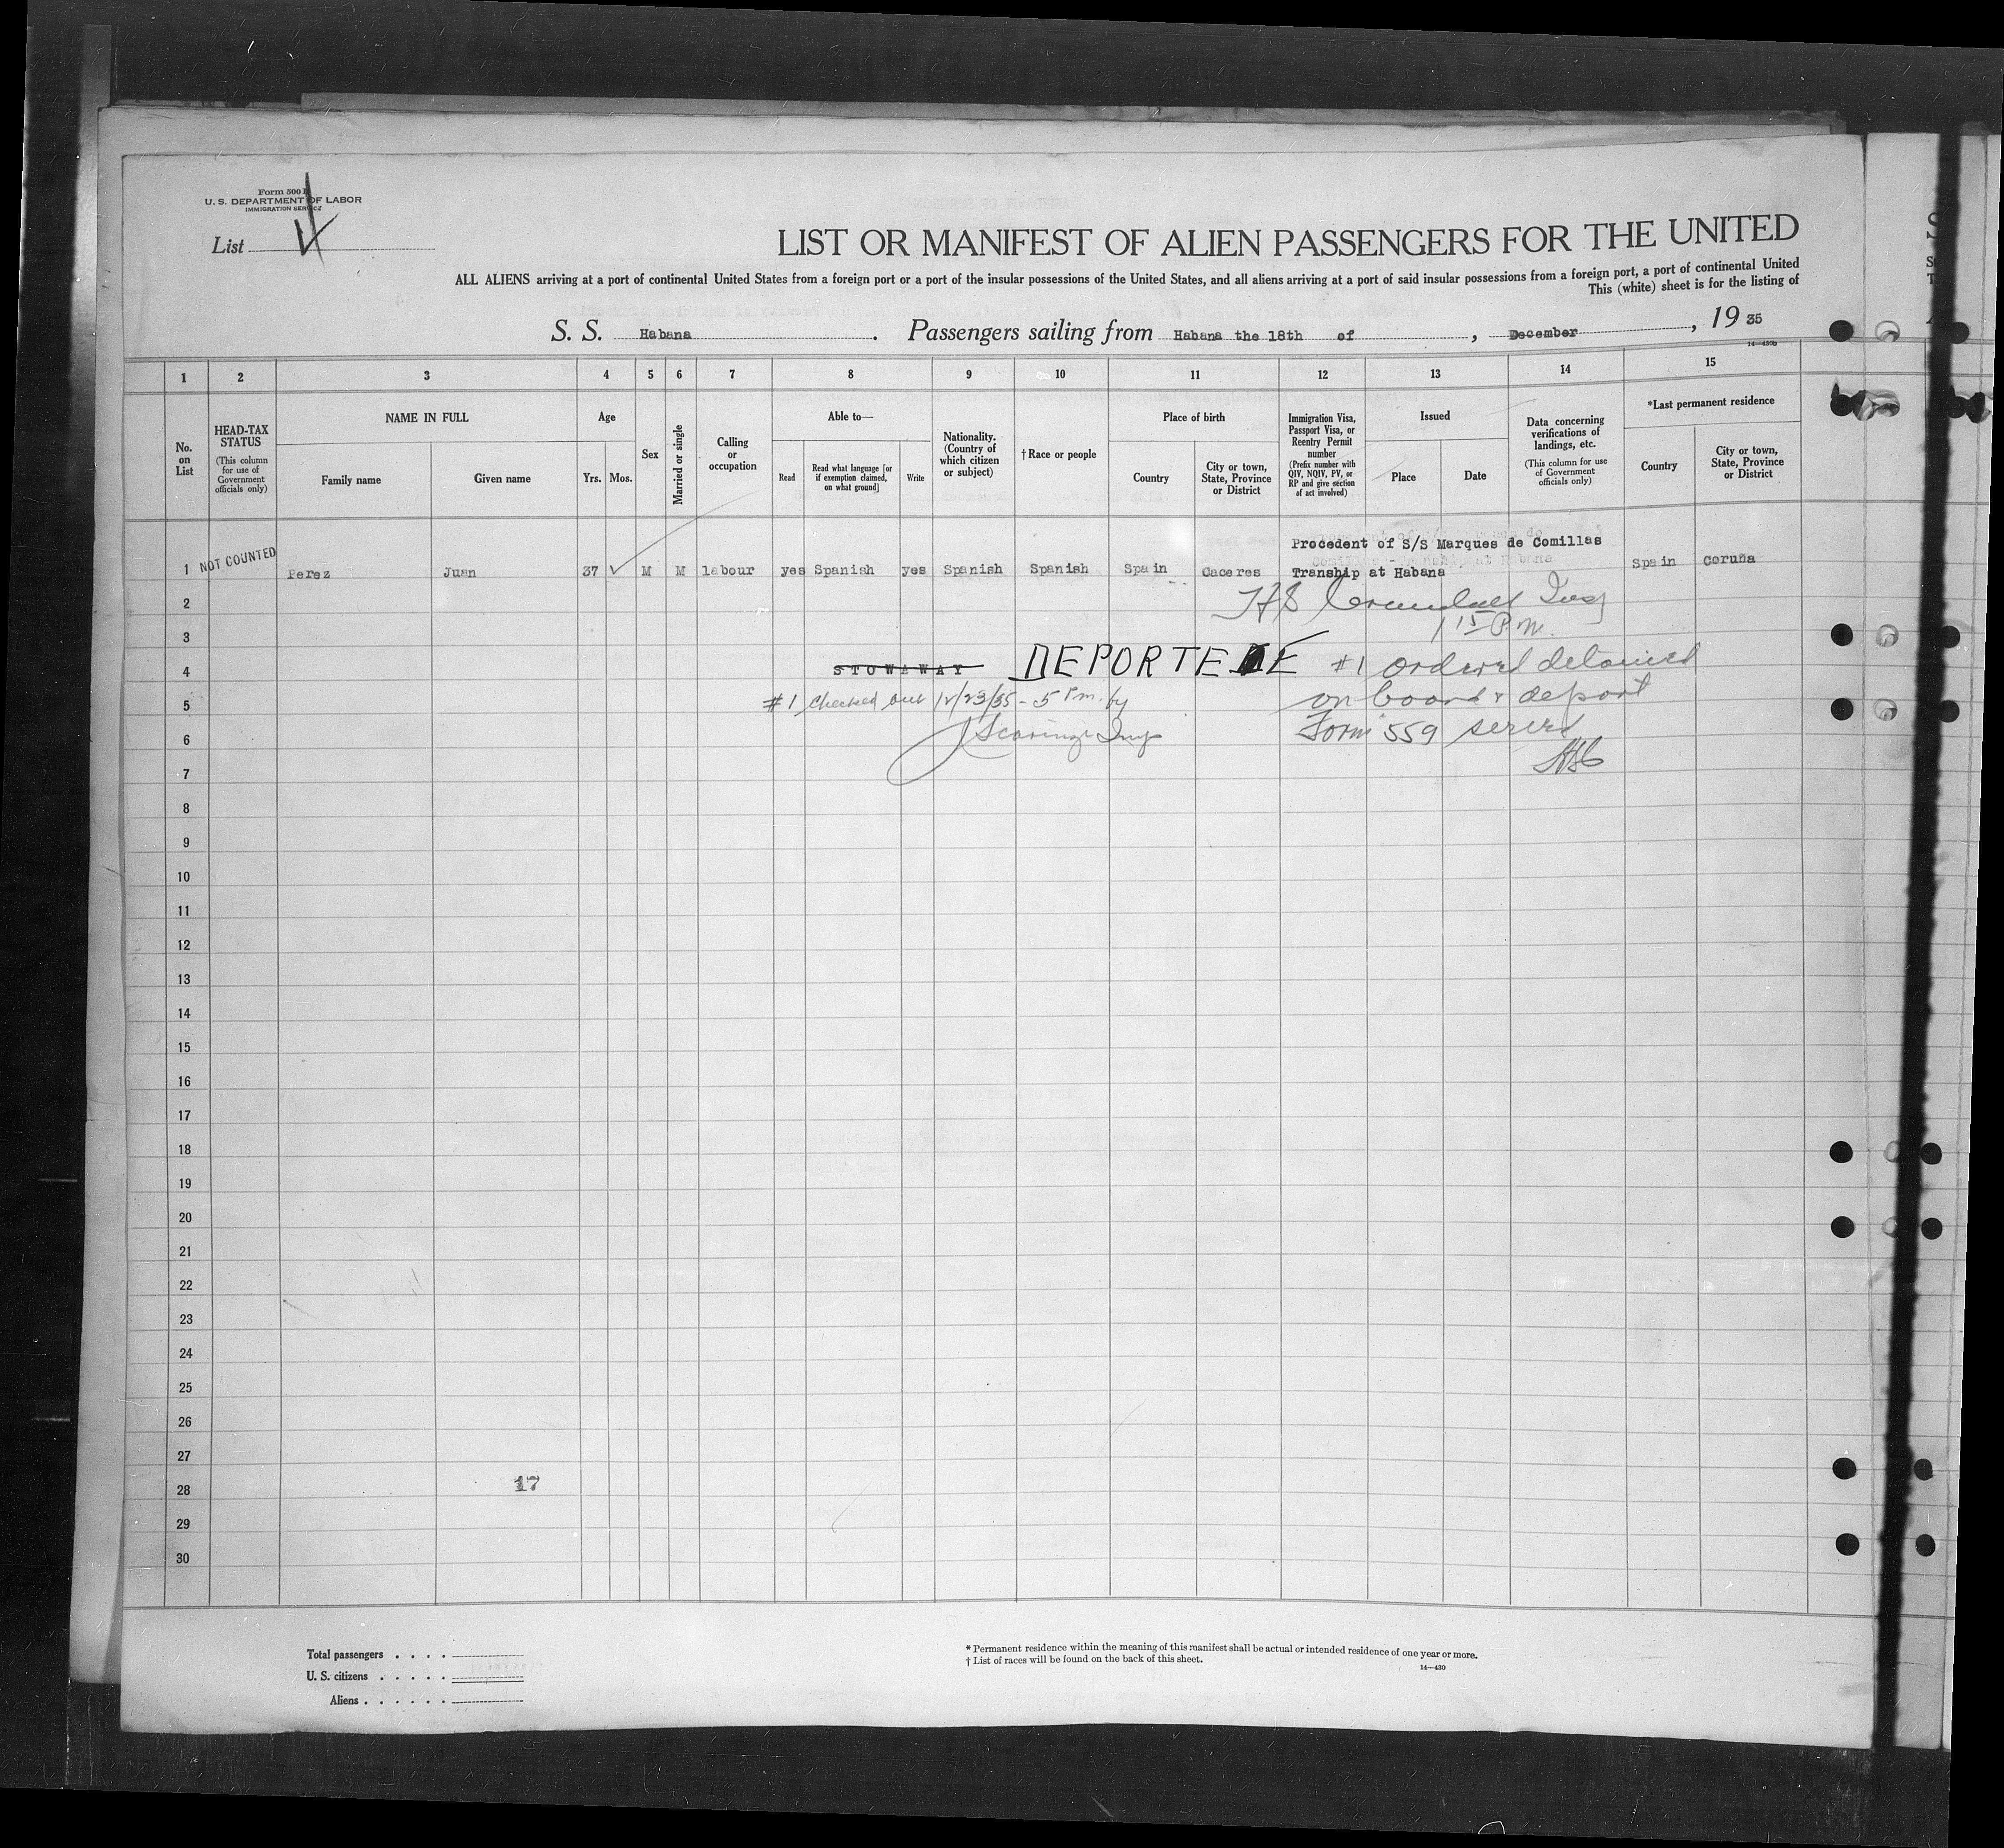 Form 500 B
U. S. DEPARTMENT OF LABOR
IMMIGRATION SERVICE
List
LIST OR MANIFEST OF ALIEN PASSENGERS FOR THE UNITED
ALL ALIENS arriving at a port of continental United States from a foreign port or a port of the insular possessions of the United States, and all aliens arriving at a port of said insular possessions from a foreign port, a port of continental United
This (white) sheet is for the listing of
S. S. Habana. Passengers sailing from Habana the 18th of, December, 19 35
14—430b
1 2 3 4 5 6 7 8 9 10 11 12 13 14 15
No. on List
HEAD-TAX STATUS
(This column for use of Government officials only)
NAME IN FULL
Family name
Given name
Age
Yrs. Mos.
Sex
Married or single
Calling or occupation
Able to—
Read
Read what language [or if exemption claimed, on what ground]
Write
Nationality. (Country of which citizen or subject)
† Race or people
Place of birth
Country
City or town, State, Province or District
Immigration Visa, Passport Visa, or Reentry Permit number
(Prefix number with QIV, NQIV, PV, or RP and give section of act involved)
Issued
Place
Date
Data concerning verifications of landings, etc.
(This column for use of Government officials only)
*Last permanent residence
Country
City or town, State, Province or District
Procedent of S/S Marques de Comillas
1 NOT COUNTED Perez Juan 37 M M labour yes Spanish yes Spanish Spanish Spain Caceres Tranship at Habana Spain Coruña
2
1 15 P.M.
3
4 STOWAWAY DEPORTE #1 ordered detained
5 #1 checked out 12/23/35 - 5 P.m. by on board & deport
6 Insp Form 559 served
7
8
9
10
11
12
13
14
15
16
17
18
19
20
21
22
23
24
25
26
27
28 17
29
30
Total passengers . . . .
U. S. citizens . . . . .
Aliens . . . . . .
* Permanent residence within the meaning of this manifest shall be actual or intended residence of one year or more.
† List of races will be found on the back of this sheet.
14—430